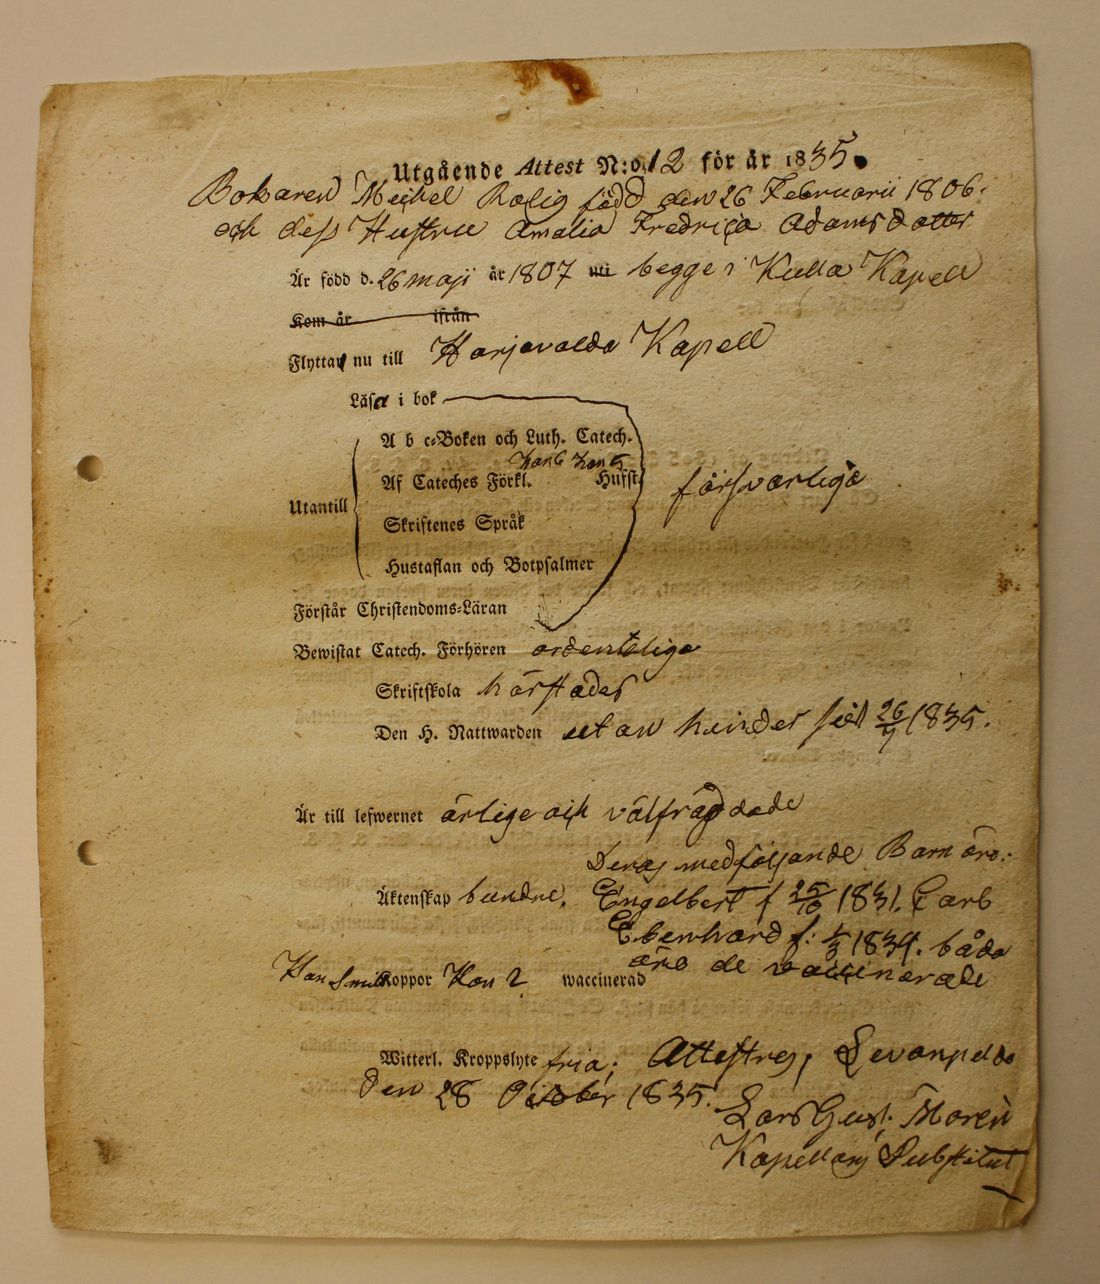 Utgående Attest N:o 12 för år 1835.
Michel Rolig född den 26 Februarii 1806.
och dess Hustru Amalia Fredrica Adamsdotter
Är född d. 26 maji år 1807 uti begge i Kulla Kapell
Kom år ifrån
Flyttar nu till Harjavalda Kapell
Läsa i bok
A b c-Boken och Luth. Catech.
Han 6 hon 5
Af Cateches Förkl. Husst.
försvarliga
Utantill
Skriftenes Språk
Hustaflan och Botpsalmer
Förstår Christendoms-Läran
Bewistat Catech. Förhören ordenteliga
Skriftskola härstädes
Den H. Nattwarden utan hinder sist 26/7 1835.
Är till lefwernet ärlige och välfrägdade
Deras medföljande Barn äro:
Äktenskap bundne. Engelbert f 25/10 1831. Carl
Ebenhard f: 1/3 1834. båda
äro de vaccinerade
Koppor Hon 2 waccinerad
Witterl. Kroppslyte fria; Attestres, Levanpelda
den 28 October 1835.
Lars Gust. Moren
Kapellans Substitut